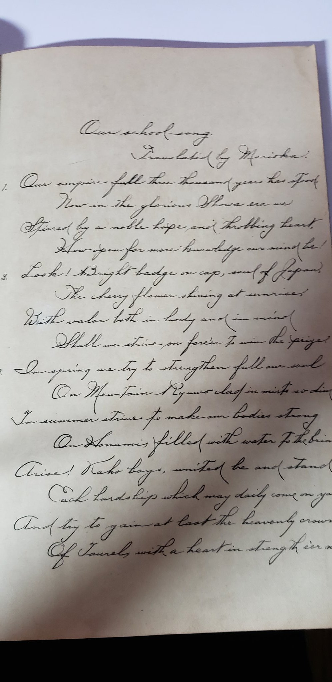 Our school song
Translated by Morioka.
1. Our empire full three thousand years has stood
Now in the glorious Showa era we
Spured by a noble hope and throbbing heart,
How open for more knowledge our mind be
2. Look! A bright badge on cap, soul of Japan!
The cherry flower shining at sunrise
With valor both in body and in mind
Shall we strive on force to win the prize
In spring we try to strengthen full our soul
On Mountain clad in mists so
In summer strive to make our bodies strong
On filled with water to the brim
Arise! boys, united be and stand
Each hardship which may daily come on
And try to gain at last the heavenly crown
Of Laurels with a heart in strength